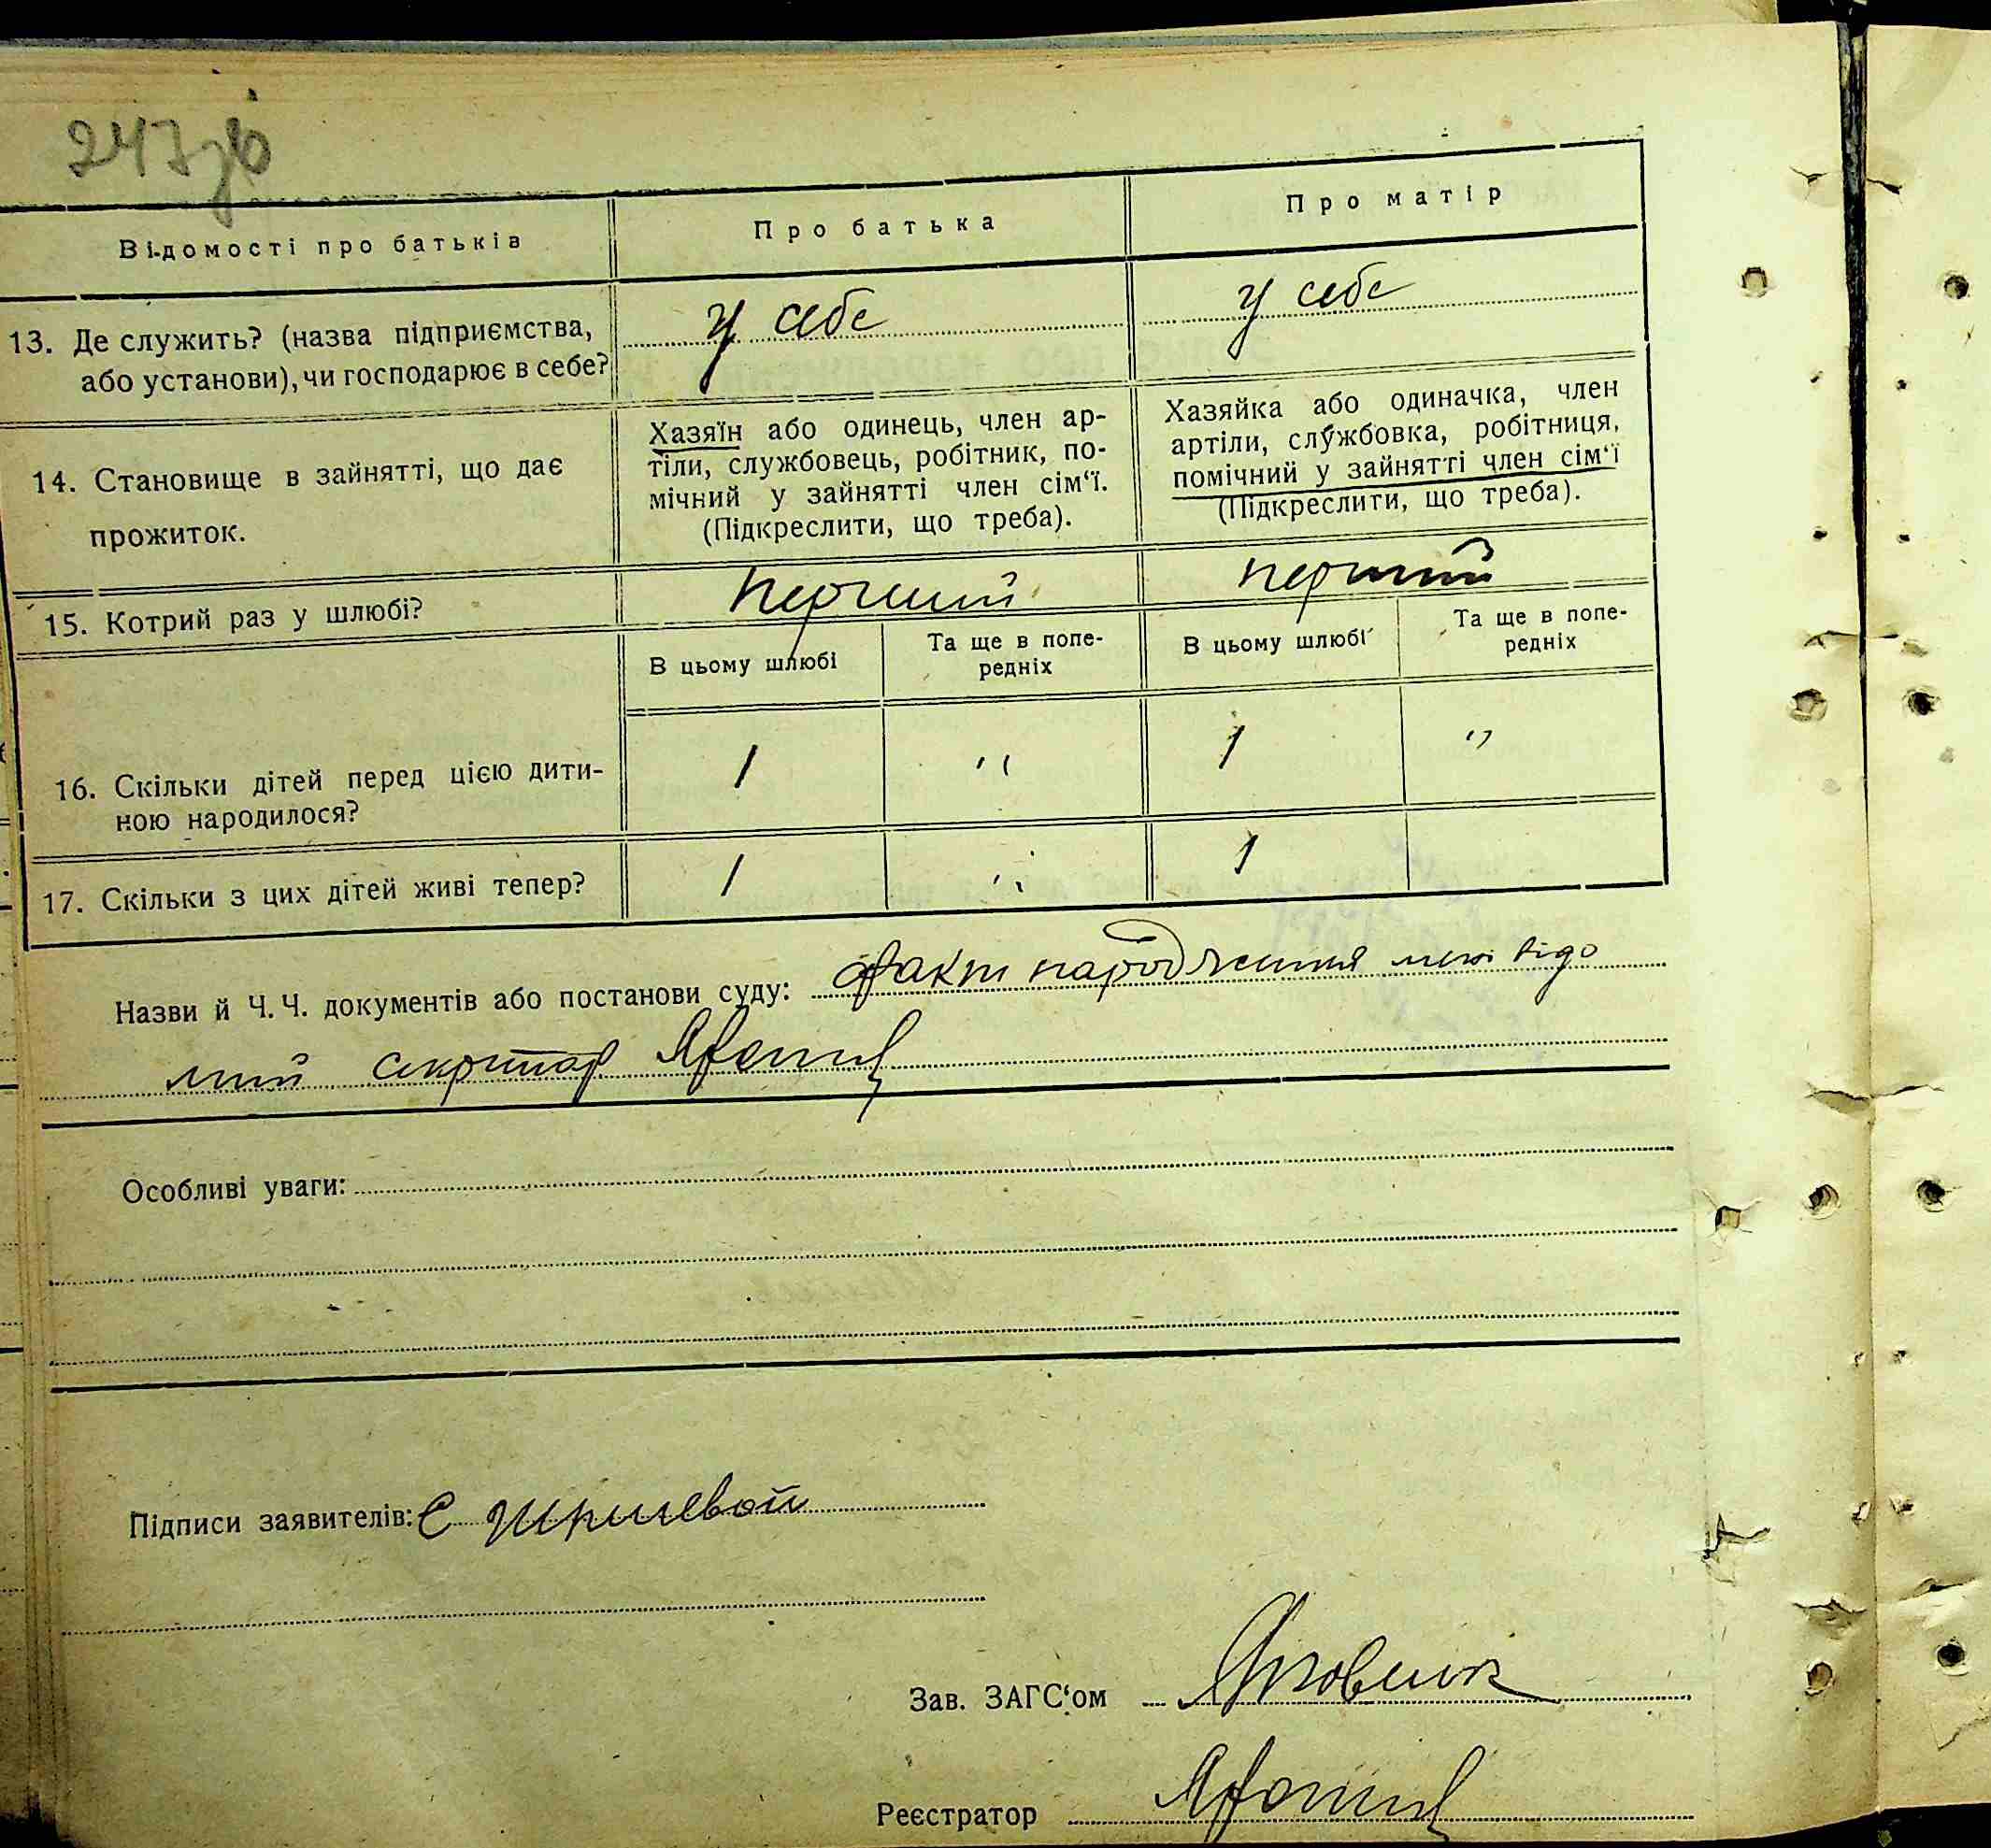 247зв
Відомості про батьків
Про батька
Про матір
13. Де служить? (назва підприємства,
або установи), чи господарює в себе?
у себе
у себе
14. Становище в зайнятті, що дає
прожиток.
Хазяїн або одинець, член ар-
тіли, службовець, робітник, по-
мічний у зайнятті член сім‘ї.
(Підкреслити, що треба).
Хазяйка або одиначка, член
артіли, службовка, робітниця,
помічний у зайнятті член сім‘ї
(Підкреслити, що треба).
15. Котрий раз у шлюбі?
перший
перший
В цьому шлюбі
Та ще в попе-
редніх
В цьому шлюбі
Та ще в попе-
редніх
16. Скільки дітей перед цією дити-
ною народилося?
1 " 1 "
17. Скільки з цих дітей живі тепер?
1 " 1
Назви й Ч. Ч. документів або постанови суду: факт народження мені відо
мий секретар
Особливі уваги:
Підписи заявителів: Є
Зав. ЗАГС‘ом
Реєстратор